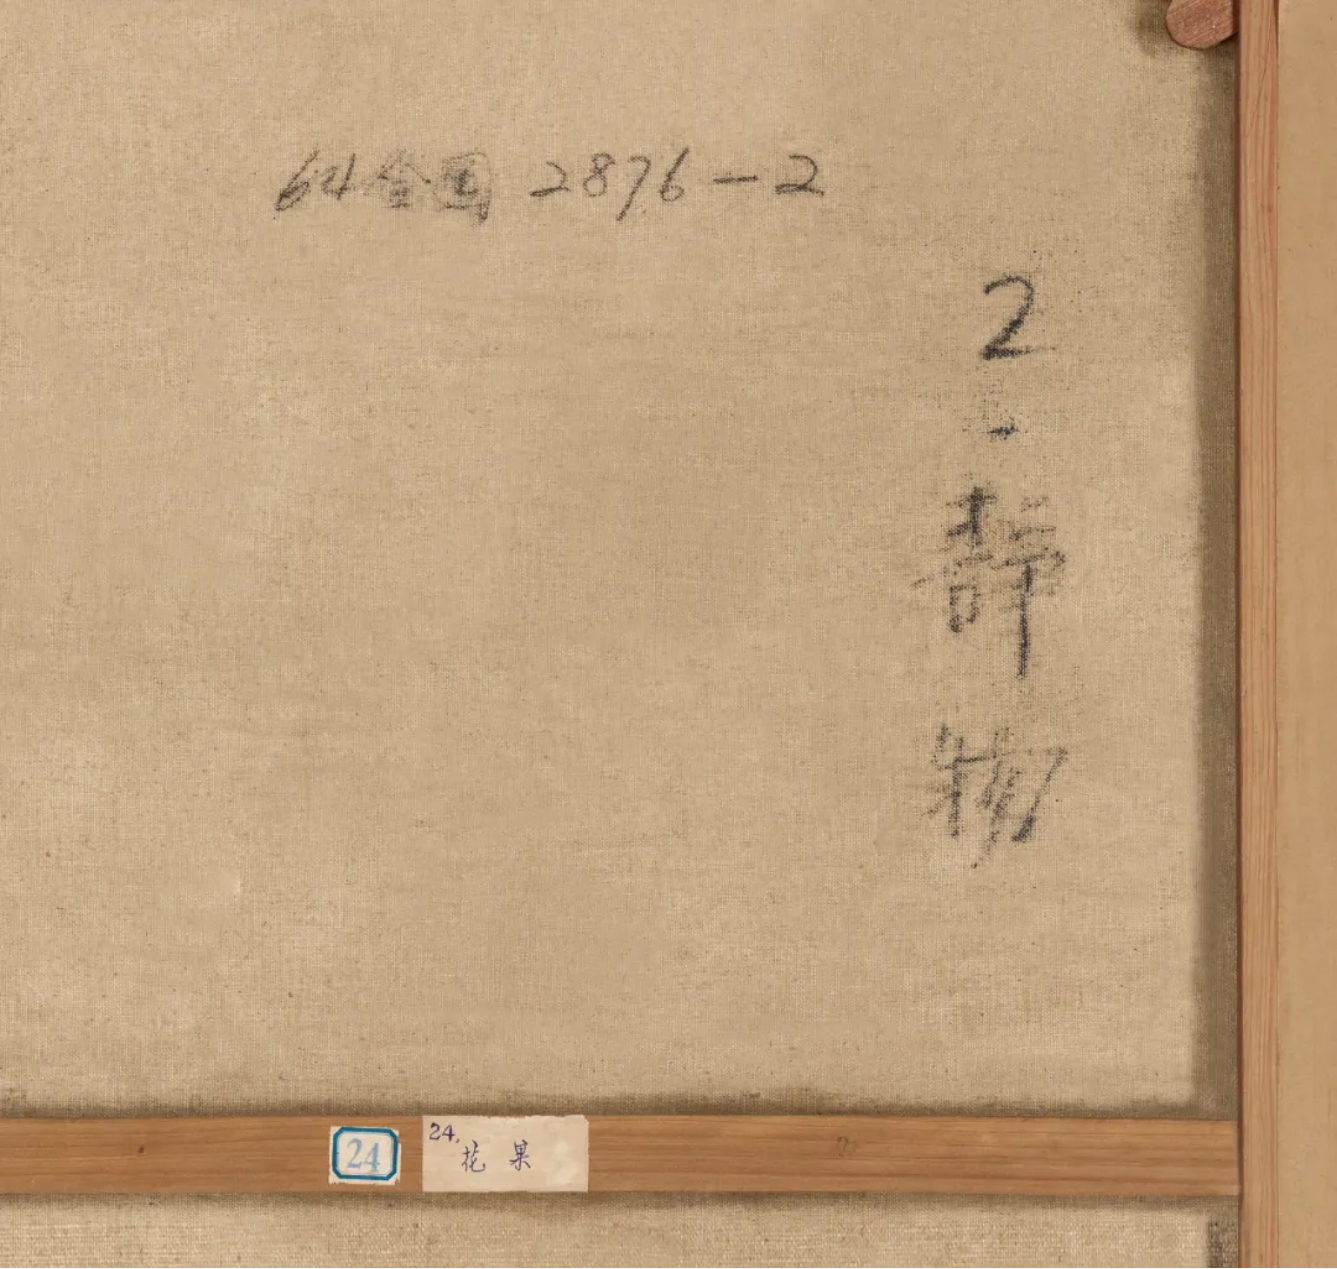 64全国 2876-2
2
静
物
24
24.
花果